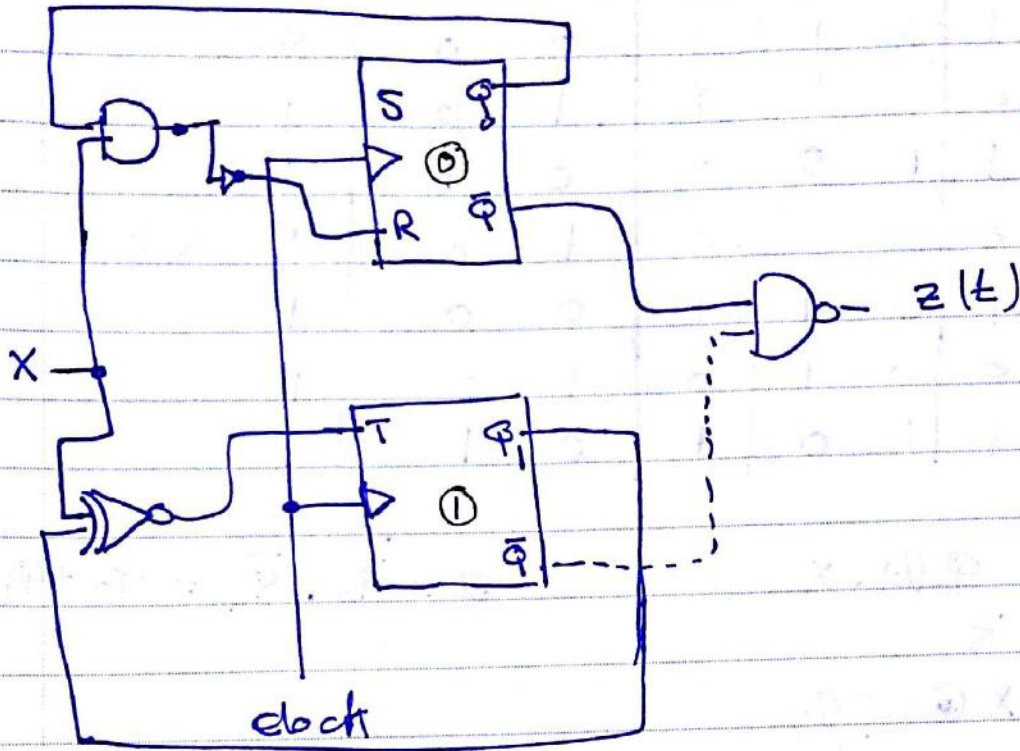 S
Q0
0
Q̄
R
z(t)
X
T
Q1
1
Q̄
clock